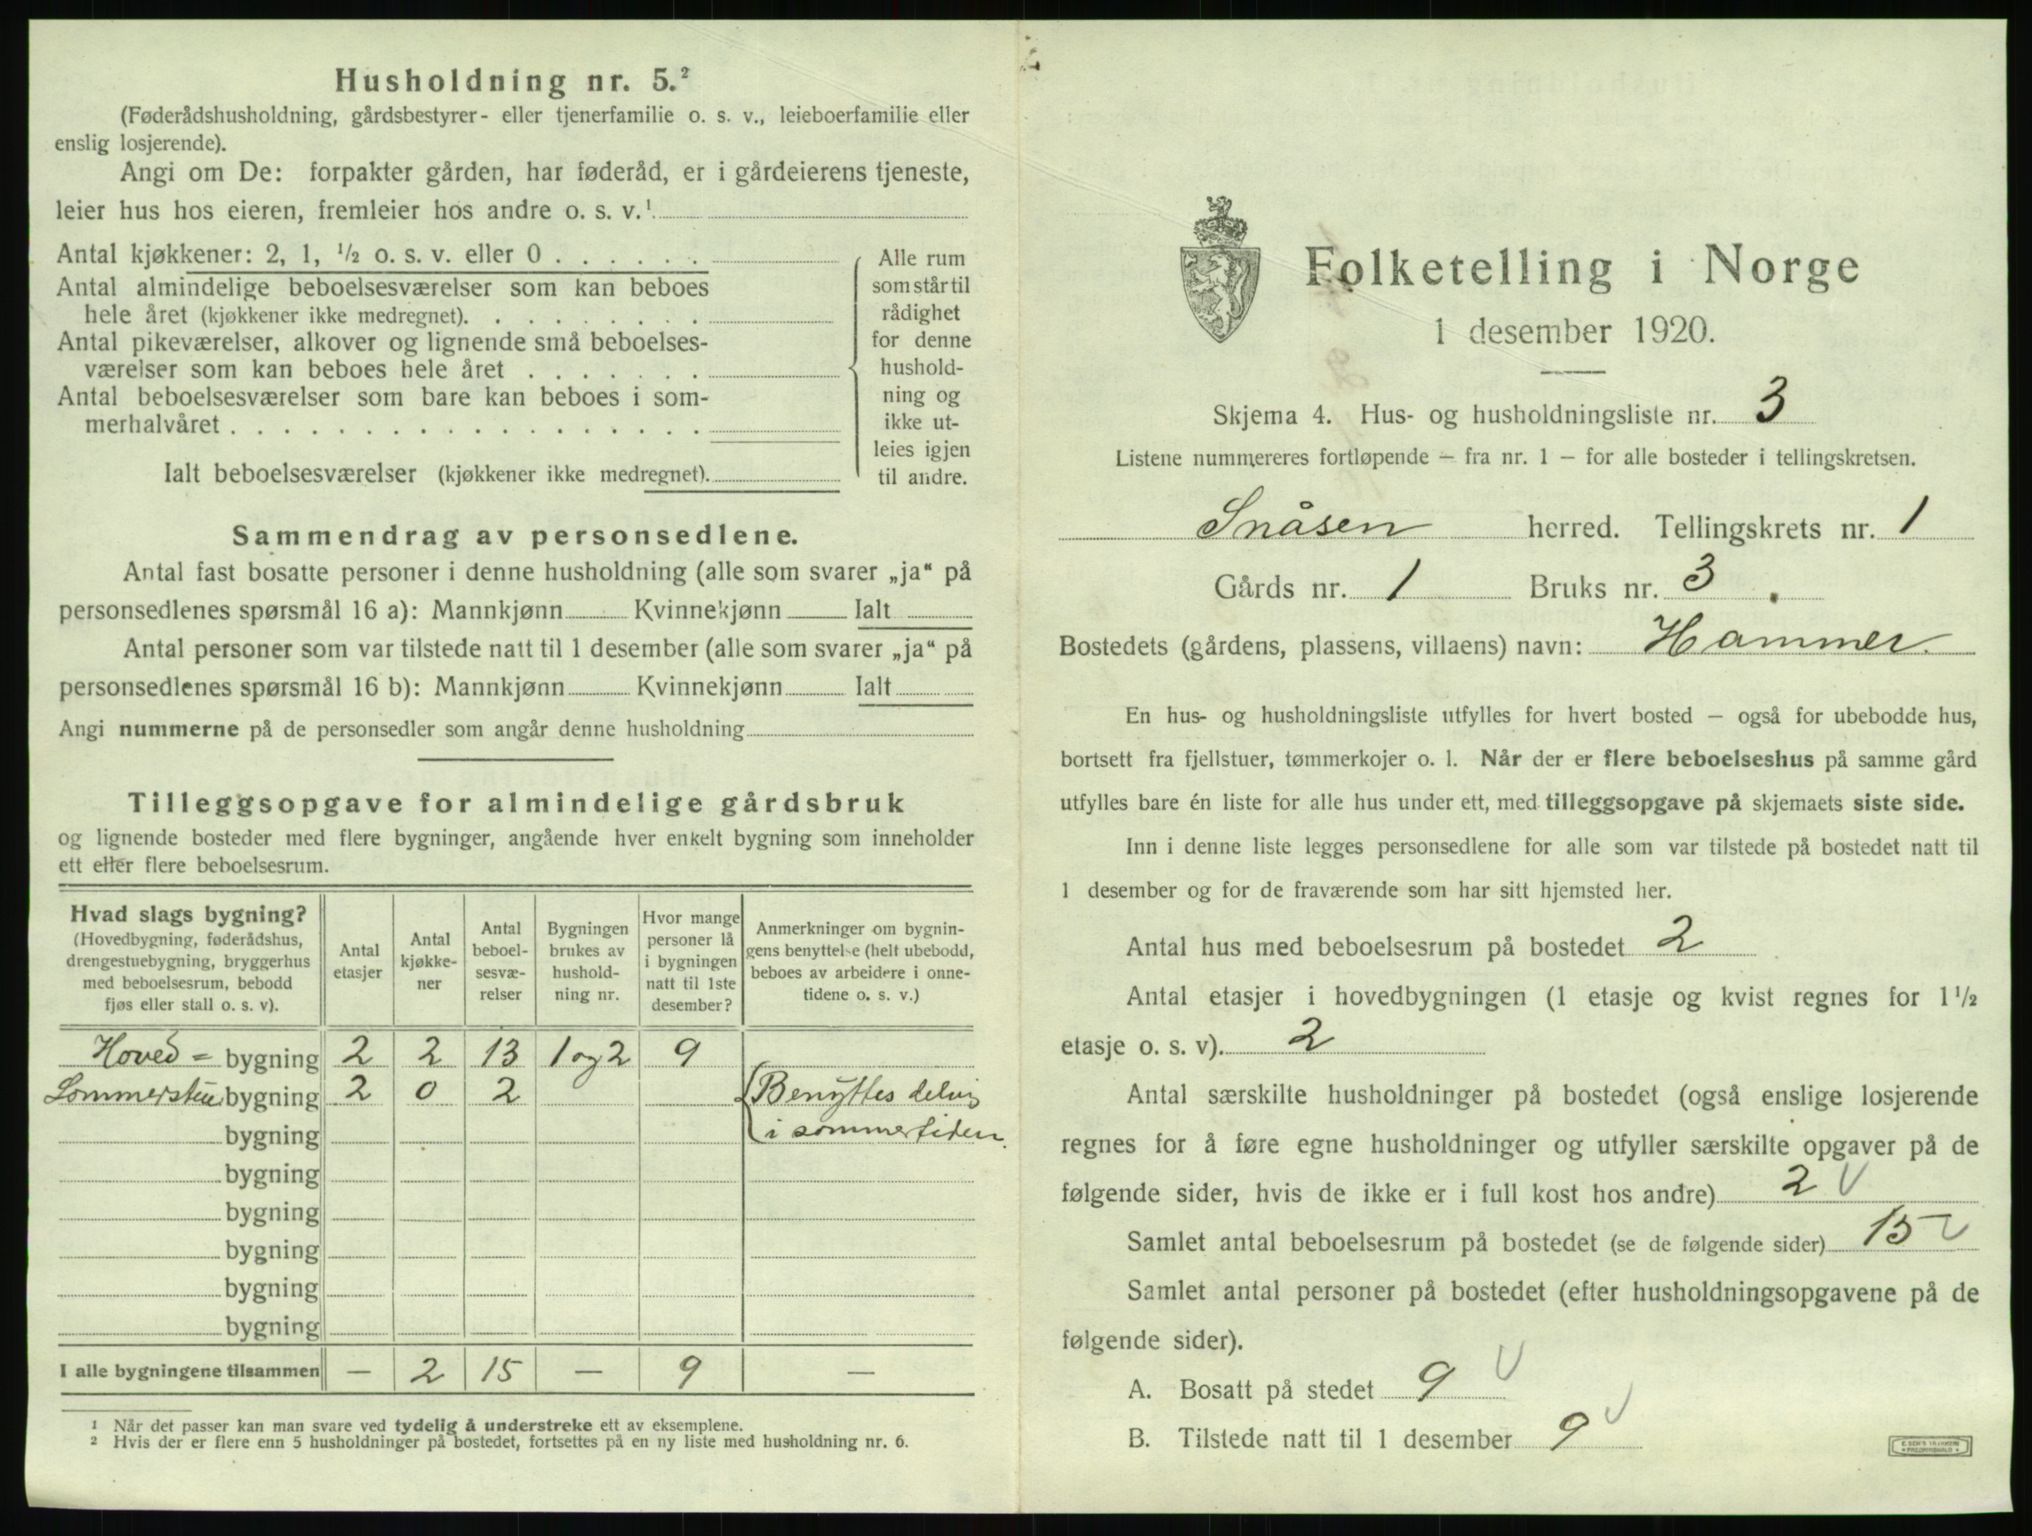 Husholdning nr. 5.²
(Føderådshusholdning, gårdsbestyrer- eller tjenerfamilie o. s. v., leieboerfamilie eller
enslig losjerende).
Angi om De: forpakter gården, har føderåd, er i gårdeierens tjeneste,
leier hus hos eieren, fremleier hos andre o. s. v.¹
Antal kjøkkener: 2, 1, ½ o. s. v. eller 0 . . . . . .
Antal almindelige beboelsesværelser som kan beboes
hele året (kjøkkener ikke medregnet). . . . . . . . .
Antal pikeværelser, alkover og lignende små beboelses-
værelser som kan beboes hele året . . . . . . .
Antal beboelsesværelser som bare kan beboes i som-
merhalvåret . . . . . . . . . . . . . . . . . .
Ialt beboelsesværelser (kjøkkener ikke medregnet).
Alle rum
som står til
rådighet
for denne
hushold-
ning og
ikke ut-
leies igjen
til andre.
Sammendrag av personsedlene.
Antal fast bosatte personer i denne husholdning (alle som svarer „ja“ på
personsedlenes spørsmål 16 a): Mannkjønn Kvinnekjønn Ialt
Antal personer som var tilstede natt til 1 desember (alle som svarer „ja“ på
personsedlenes spørsmål 16 b): Mannkjønn Kvinnekjønn Ialt
Angi nummerne på de personsedler som angår denne husholdning
Tilleggsopgave for almindelige gårdsbruk
og lignende bosteder med flere bygninger, angående hver enkelt bygning som inneholder
ett eller flere beboelsesrum.
Hvad slags bygning?
(Hovedbygning, føderådshus,
drengestuebygning, bryggerhus
med beboelsesrum, bebodd
fjøs eller stall o. s. v).
Antal
etasjer
Antal
kjøkke-
ner
Antal
beboel-
sesvæ-
relser
Bygningen
brukes av
hushold-
ning nr.
Hvor mange
personer lå
i bygningen
natt til 1ste
desember?
Anmerkninger om bygnin-
gens benyttelse (helt ubebodd,
beboes av arbeidere i onne-
tidene o. s. v.)
Hoved= bygning 2 2 13 1 og 2 9
Sommerstue bygning 2 0 2 Benyttes delvis
bygning i sommertiden.
bygning
bygning
bygning
bygning
bygning
I alle bygningene tilsammen — 2 15 — 9 —
¹ Når det passer kan man svare ved tydelig å understreke ett av eksemplene.
² Hvis der er flere enn 5 husholdninger på bostedet, fortsettes på en ny liste med husholdning nr. 6.
Folketelling i Norge
1 desember 1920.
Skjema 4. Hus- og husholdningsliste nr. 3
Listene nummereres fortløpende – fra nr. 1 – for alle bosteder i tellingskretsen.
Snåsen herred. Tellingskrets nr. 1
Gårds nr. 1 Bruks nr. 3
Bostedets (gårdens, plassens, villaens) navn: Hammer.
En hus- og husholdningsliste utfylles for hvert bosted – også for ubebodde hus,
bortsett fra fjellstuer, tømmerkojer o. l. Når der er flere beboelseshus på samme gård
utfylles bare én liste for alle hus under ett, med tilleggsopgave på skjemaets siste side.
Inn i denne liste legges personsedlene for alle som var tilstede på bostedet natt til
1 desember og for de fraværende som har sitt hjemsted her.
Antal hus med beboelsesrum på bostedet 2
Antal etasjer i hovedbygningen (1 etasje og kvist regnes for 1½
etasje o. s. v). 2
Antal særskilte husholdninger på bostedet (også enslige losjerende
regnes for å føre egne husholdninger og utfyller særskilte opgaver på de
følgende sider, hvis de ikke er i full kost hos andre) 2 v
Samlet antal beboelsesrum på bostedet (se de følgende sider) 15 v
Samlet antal personer på bostedet (efter husholdningsopgavene på de
følgende sider).
A. Bosatt på stedet 9 v
B. Tilstede natt til 1 desember 9 v